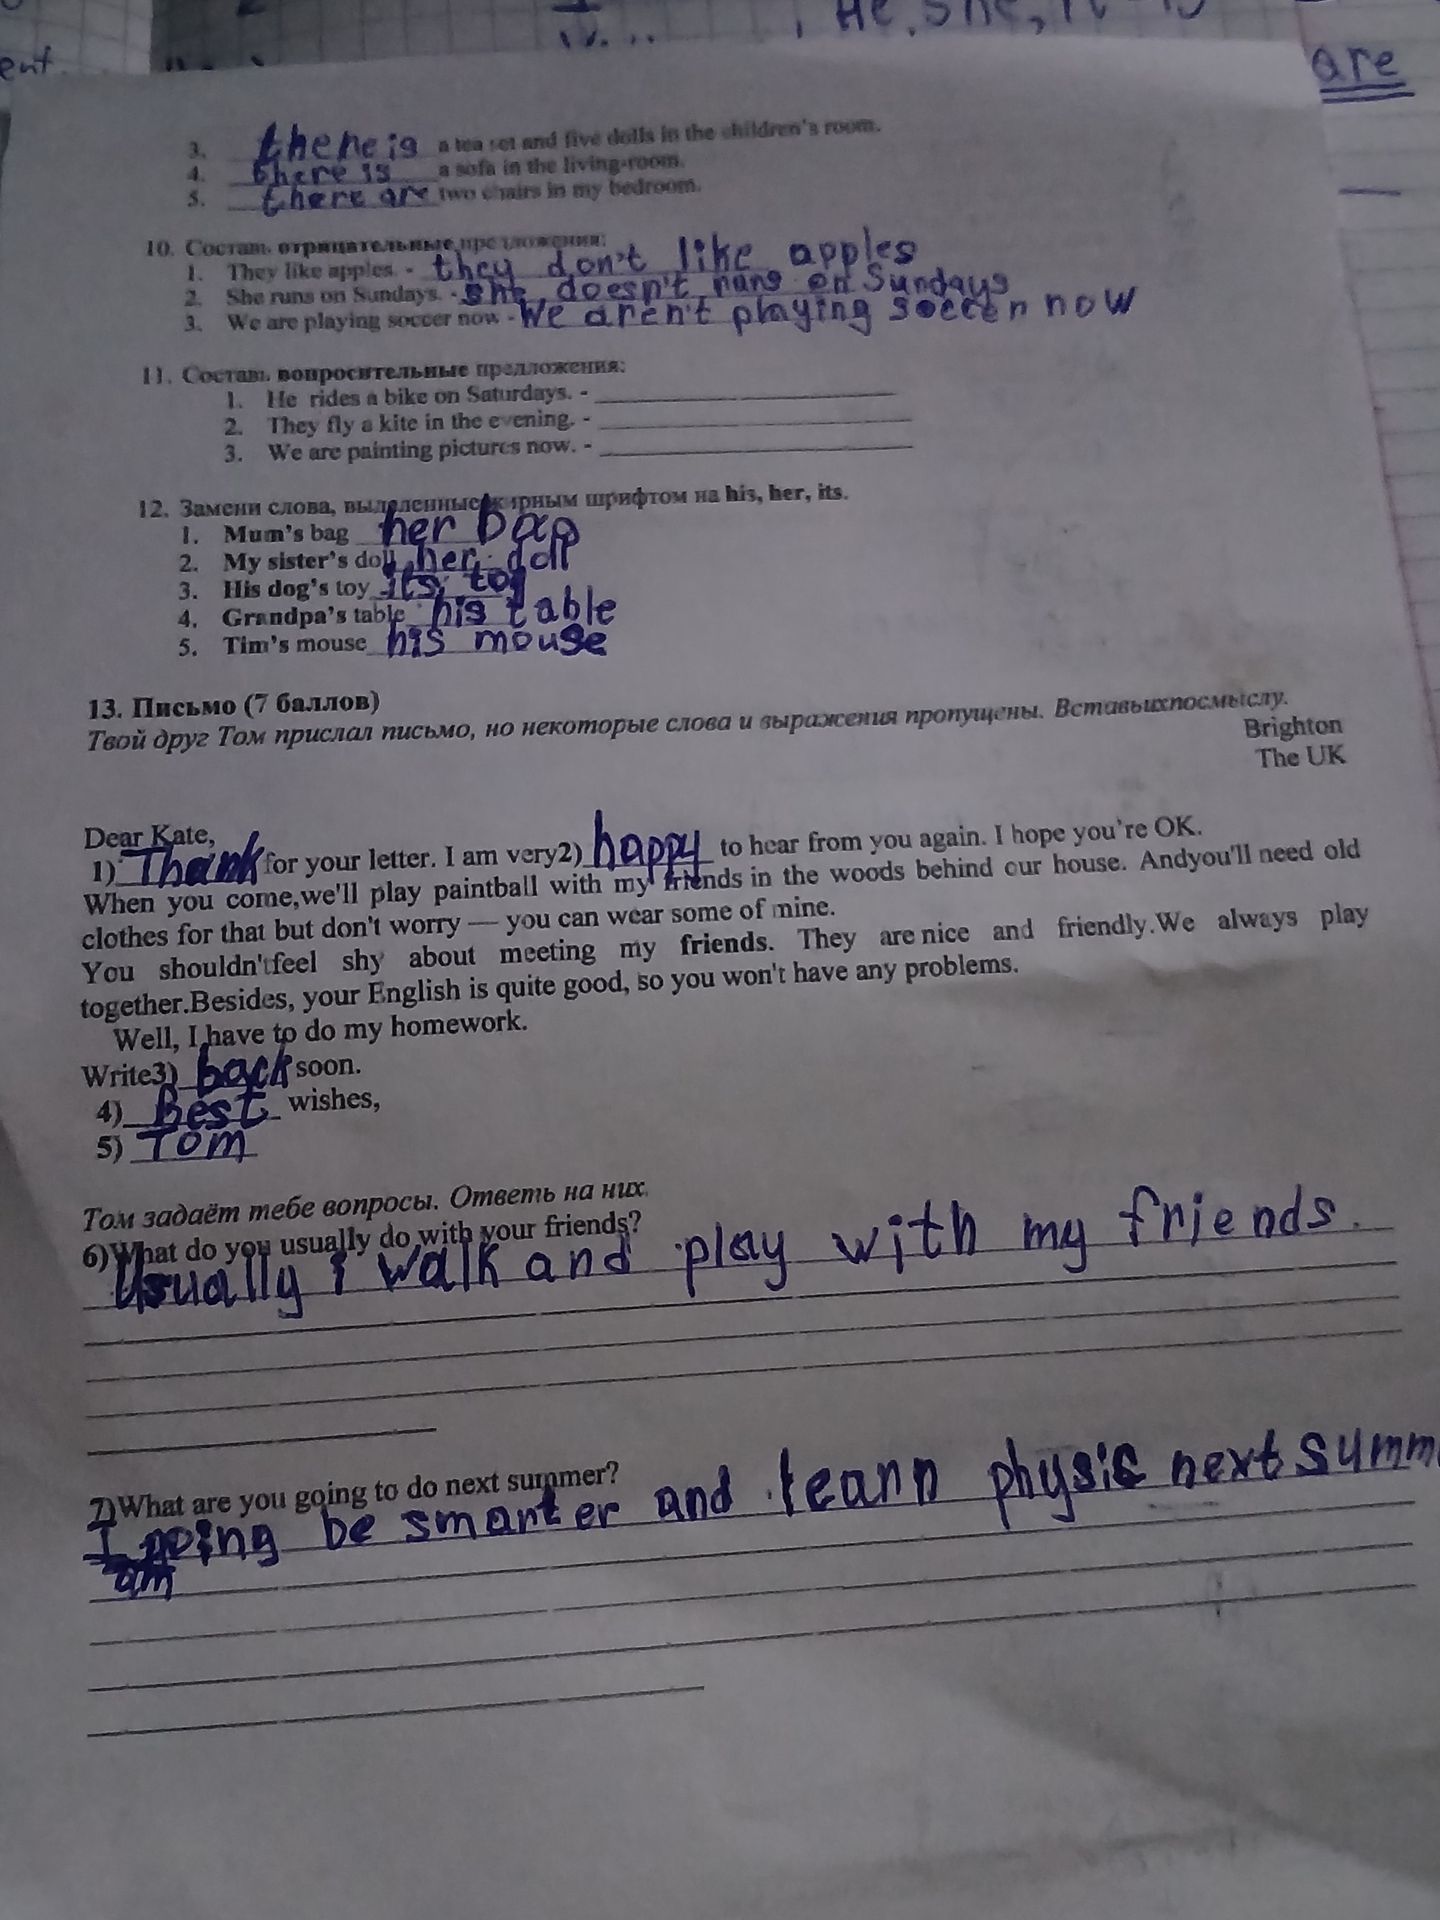 He, she, it - is
ent
are
3. there is a tea set and five dolls in the children's room.
4. there is a sofa in the living-room.
5. there are two chairs in my bedroom.
10. Составь отрицательные предложения:
1. They like apples. - they don't like apples
2. She runs on Sundays. - she doesn't runs on Sundays
3. We are playing soccer now - We aren't playing soccer now
11. Составь вопросительные предложения:
1. He rides a bike on Saturdays. -
2. They fly a kite in the evening. -
3. We are painting pictures now. -
12. Замени слова, выделенные жирным шрифтом на his, her, its.
1. Mum's bag her bag
2. My sister's doll her doll
3. His dog's toy its toy
4. Grandpa's table his table
5. Tim's mouse his mouse
13. Письмо (7 баллов)
Твой друг Том прислал письмо, но некоторые слова и выражения пропущены. Вставьихпосмыслу.
Brighton
The UK
Dear Kate,
1) Thank for your letter. I am very2) happy to hear from you again. I hope you're OK.
When you come,we'll play paintball with my friends in the woods behind our house. Andyou'll need old
clothes for that but don't worry — you can wear some of mine.
You shouldn'tfeel shy about meeting my friends. They are nice and friendly.We always play
together.Besides, your English is quite good, so you won't have any problems.
Well, I have to do my homework.
Write3) back soon.
4) Best wishes,
5) Tom
Том задаёт тебе вопросы. Ответь на них.
6)What do you usually do with your friends?
Usually i walk and play with my friends.
7)What are you going to do next summer?
I going be smarter and learn physic next summ
am